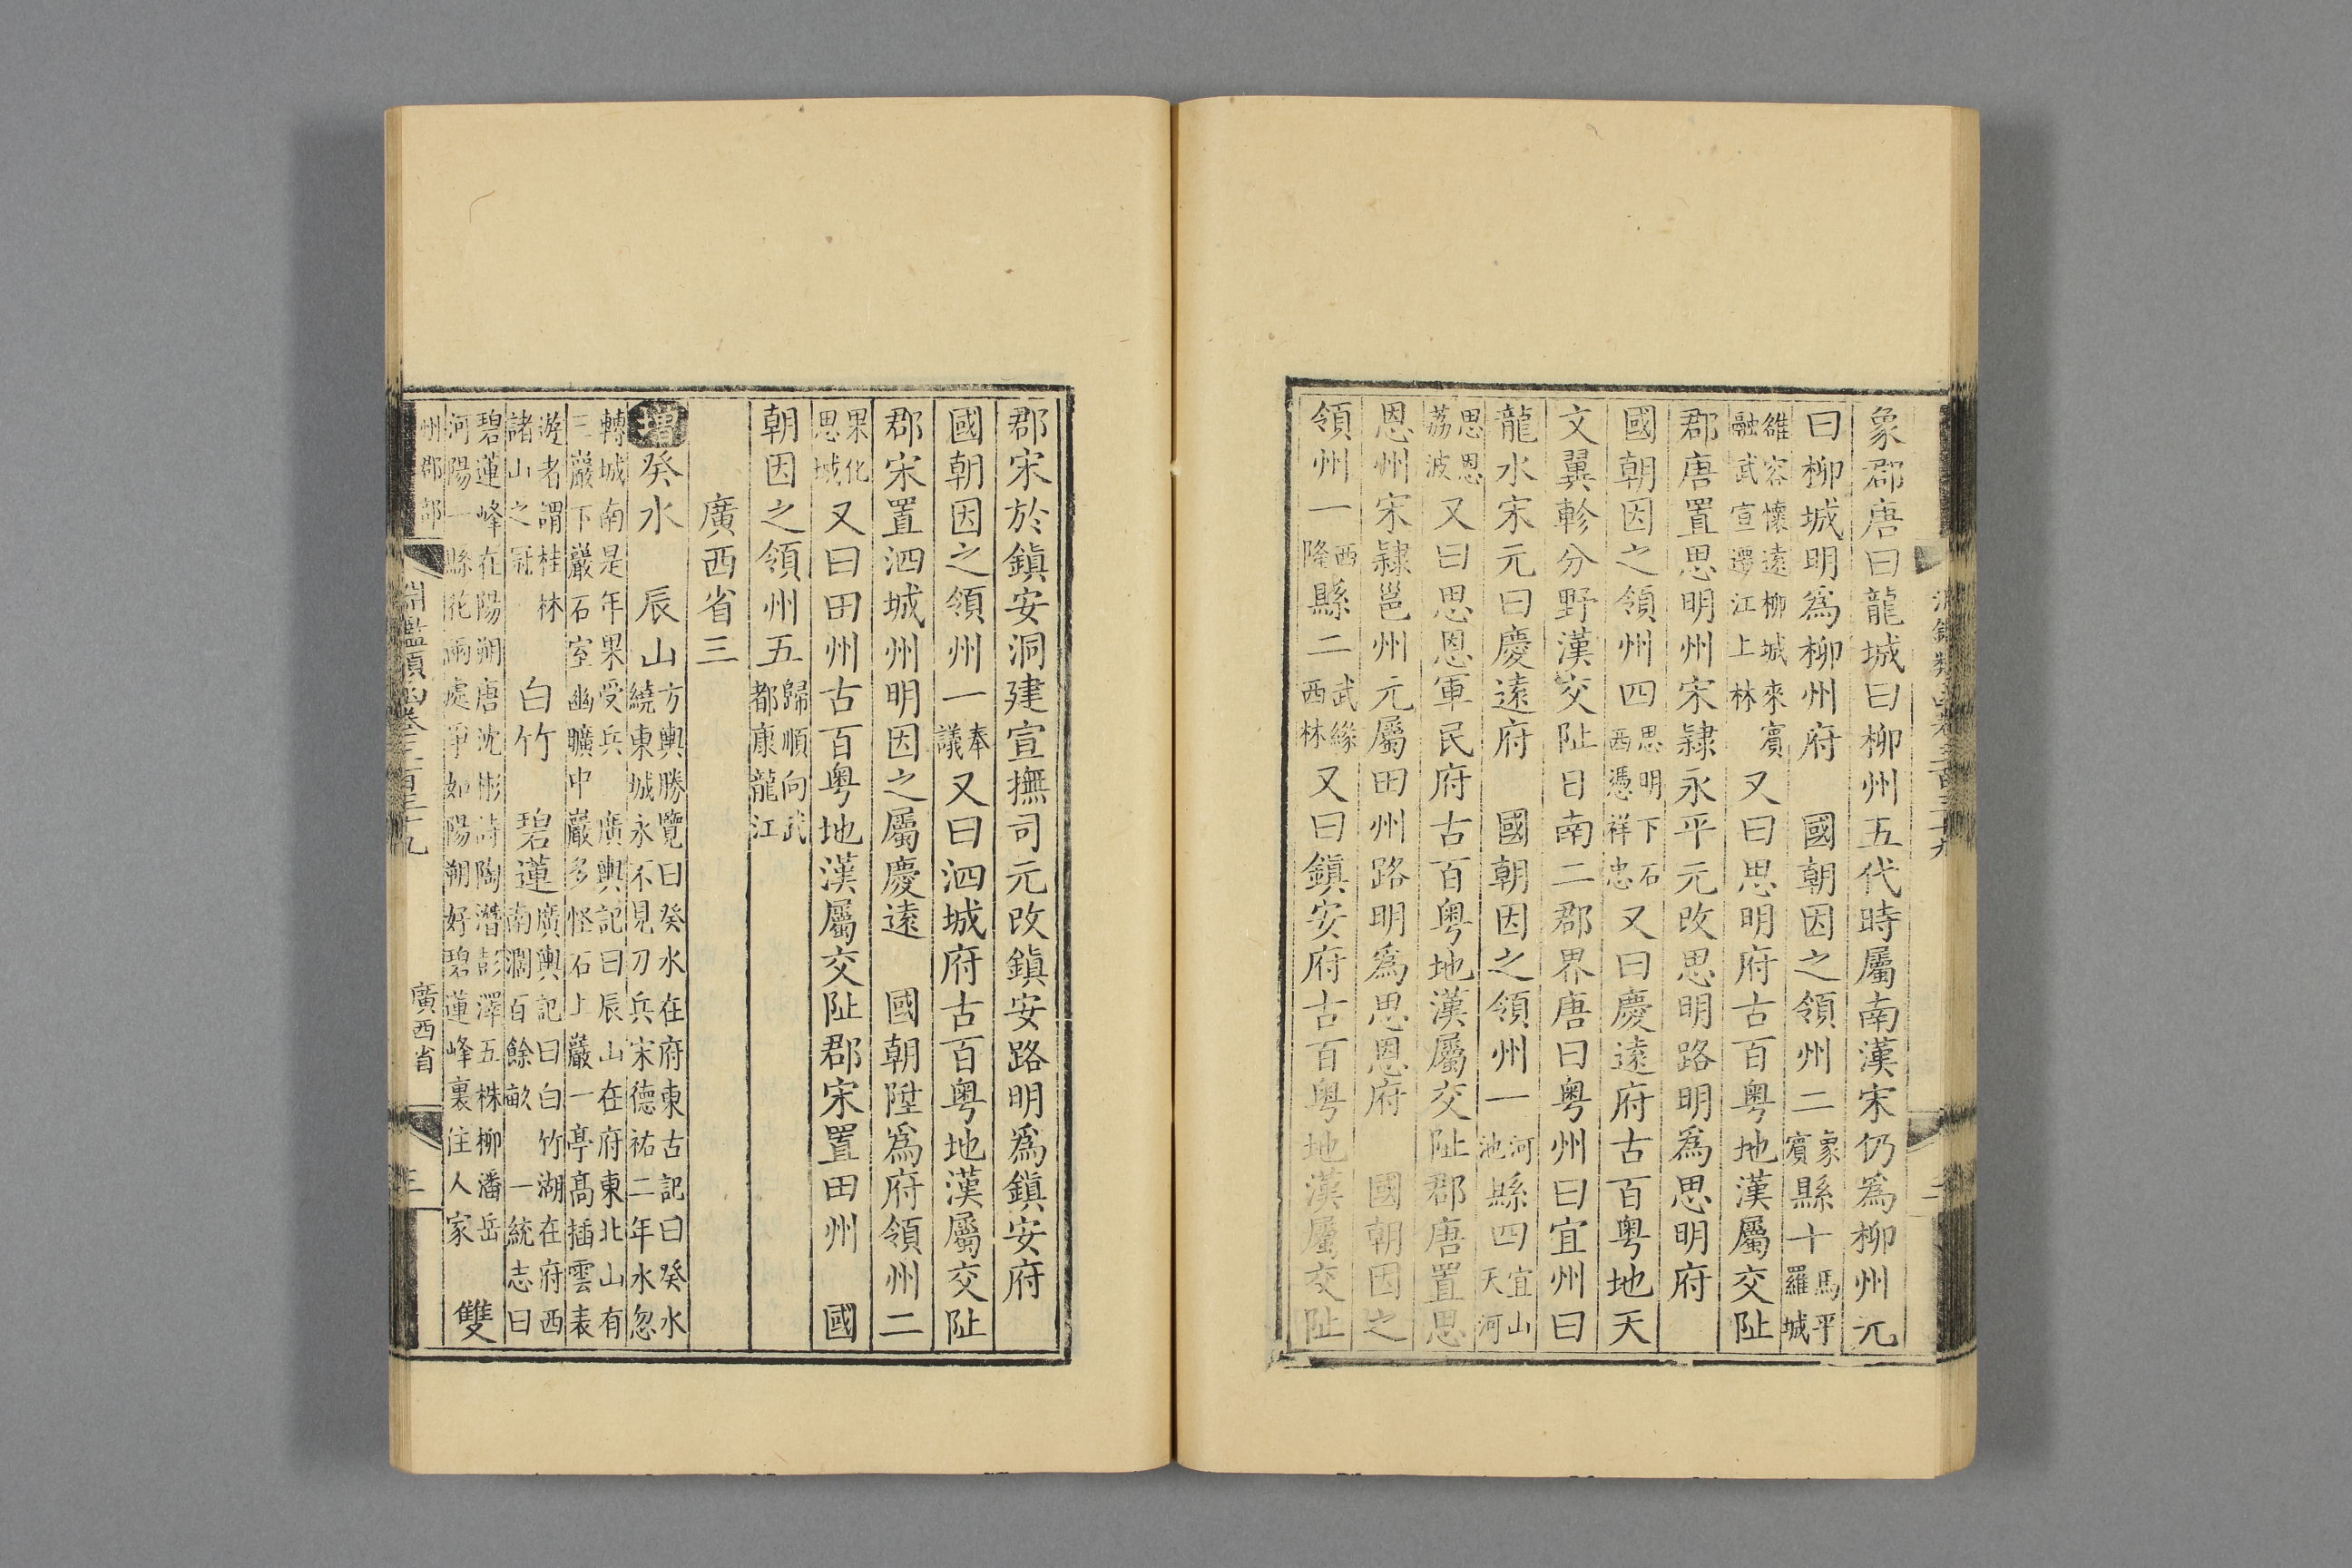 象郡唐曰龍城曰柳州五代時屬南漢宋仍爲柳州元
曰柳城明爲柳州府 國朝因之領州二象賓縣十馬平羅城
雒容懷遠柳城來賓融武宣遷江上林又曰思明府古百粤地漢屬交阯
郡唐置思明州宋隷永平元改思明路明爲思明府
國朝因之領州四思明下石西憑祥忠又曰慶遠府古百粤地天
文翼軫分野漢交阯日南二郡界唐曰粤州曰宜州曰
龍水宋元曰慶遠府 國朝因之領州一河池縣四宜山天河
思恩荔波又曰思恩軍民府古百粤地漢屬交阯郡唐置思
恩州宋隷邕州元屬田州路明爲思恩府 國朝因之
領州一西隆縣二武緣西林又曰鎭安府古百粤地漢屬交阯
郡宋於鎭安洞建宣撫司元改鎭安路明爲鎭安府
國朝因之領州一奉議又曰泗城府古百粤地漢屬交阯
郡宋置泗城州明因之屬慶遠 國朝陞爲府領州二
果化思城又曰田州古百粤地漢屬交阯郡宋置田州 國
朝因之領州五歸順向武都康龍江
廣西省三
增癸水 辰山方輿勝覽曰癸水在府東古記曰癸水繞東城永不見刀兵宋德祐二年水忽
轉城南是年果受兵 廣輿記曰辰山在府東北山有三巖下巖石室幽曠中巖多怪石上巖一亭高插雲表
遊者謂桂林諸山之冠 白竹 碧蓮廣輿記曰白竹湖在府西南濶百餘畝 一統志曰
碧蓮峰在陽朔唐沈彬詩陶潛彭澤五株柳潘岳河陽一縣花兩處爭如陽朔好碧蓮峰裏住人家 雙
州郡部
淵鑑類函卷三百三十九
廣西省
三